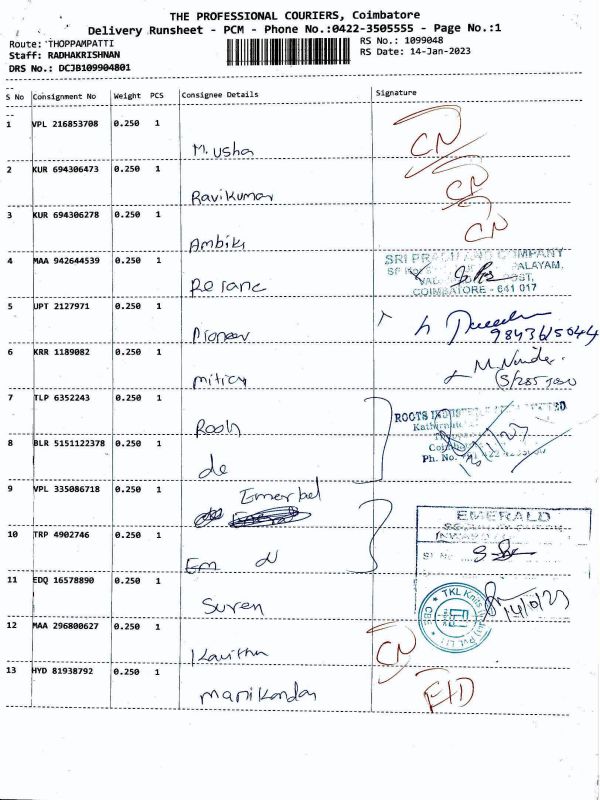 THE PROFESSIONAL COURIERS, Coimbatore
Delivery Runsheet - PCM - Phone No.:0422-3505555 - Page No.:1
Route: THOPPAMPATTI
RS No.: 1099048
Staff: RADHAKRISHNAN
RS Date: 14-Jan-2023
DRS No.: DCJB109904801
S No Consignment No Weight PCS Consignee Details Signature
1 VPL 216853708 0.250 1
M. Usha CN
2 KUR 694306473 0.250 1
Ravikumar CN
3 KUR 694306278 0.250 1
Ambika CN
4 MAA 942644539 0.250 1
SRI AND COMPANY
COIMBATORE - 641 017
5 UPT 2127971 0.250 1
Pioneer
6 KRR 1189082 0.250 1
7 TLP 6352243 0.250 1
ROOTS
Ph. No.
8 BLR 5151122378 0.250 1
do
9 VPL 335086718 0.250 1
EMERALD
10 TRP 4902746 0.250 1
Em
11 EDQ 16578890 0.250 1
Suren
TKL Knits Pvt. Ltd
CBE
12 MAA 296800627 0.250 1
Kavitha CN
13 HYD 81938792 0.250 1
Manikandan